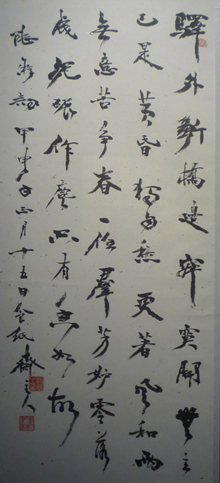 驛外斷橋邊寂寞開無主
已是黃昏獨自愁更著風和雨
無意苦爭春一任羣芳妒零落
成泥碾作塵只有香如故
甲申年正月十五日